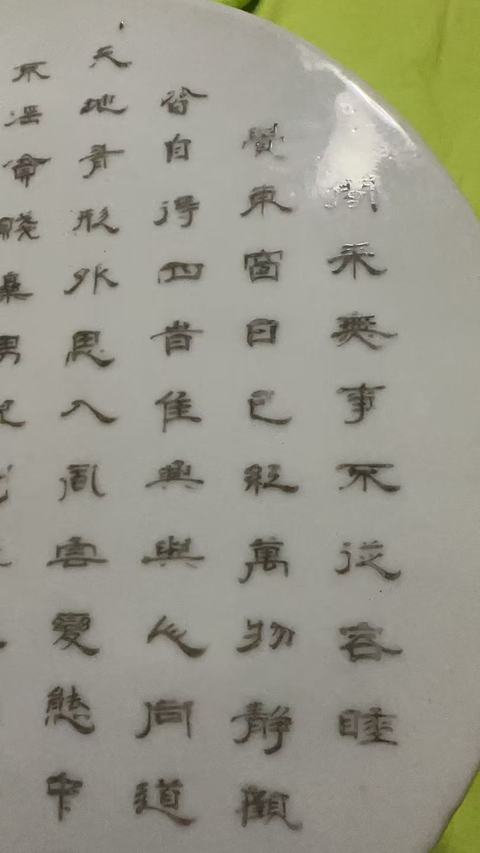 閒来無事不從容睡
覺東窗日已紅萬物靜觀
皆自得四旹佳興與人同道
天地有形外思入風雲變態中
不淫貧賤樂男兒